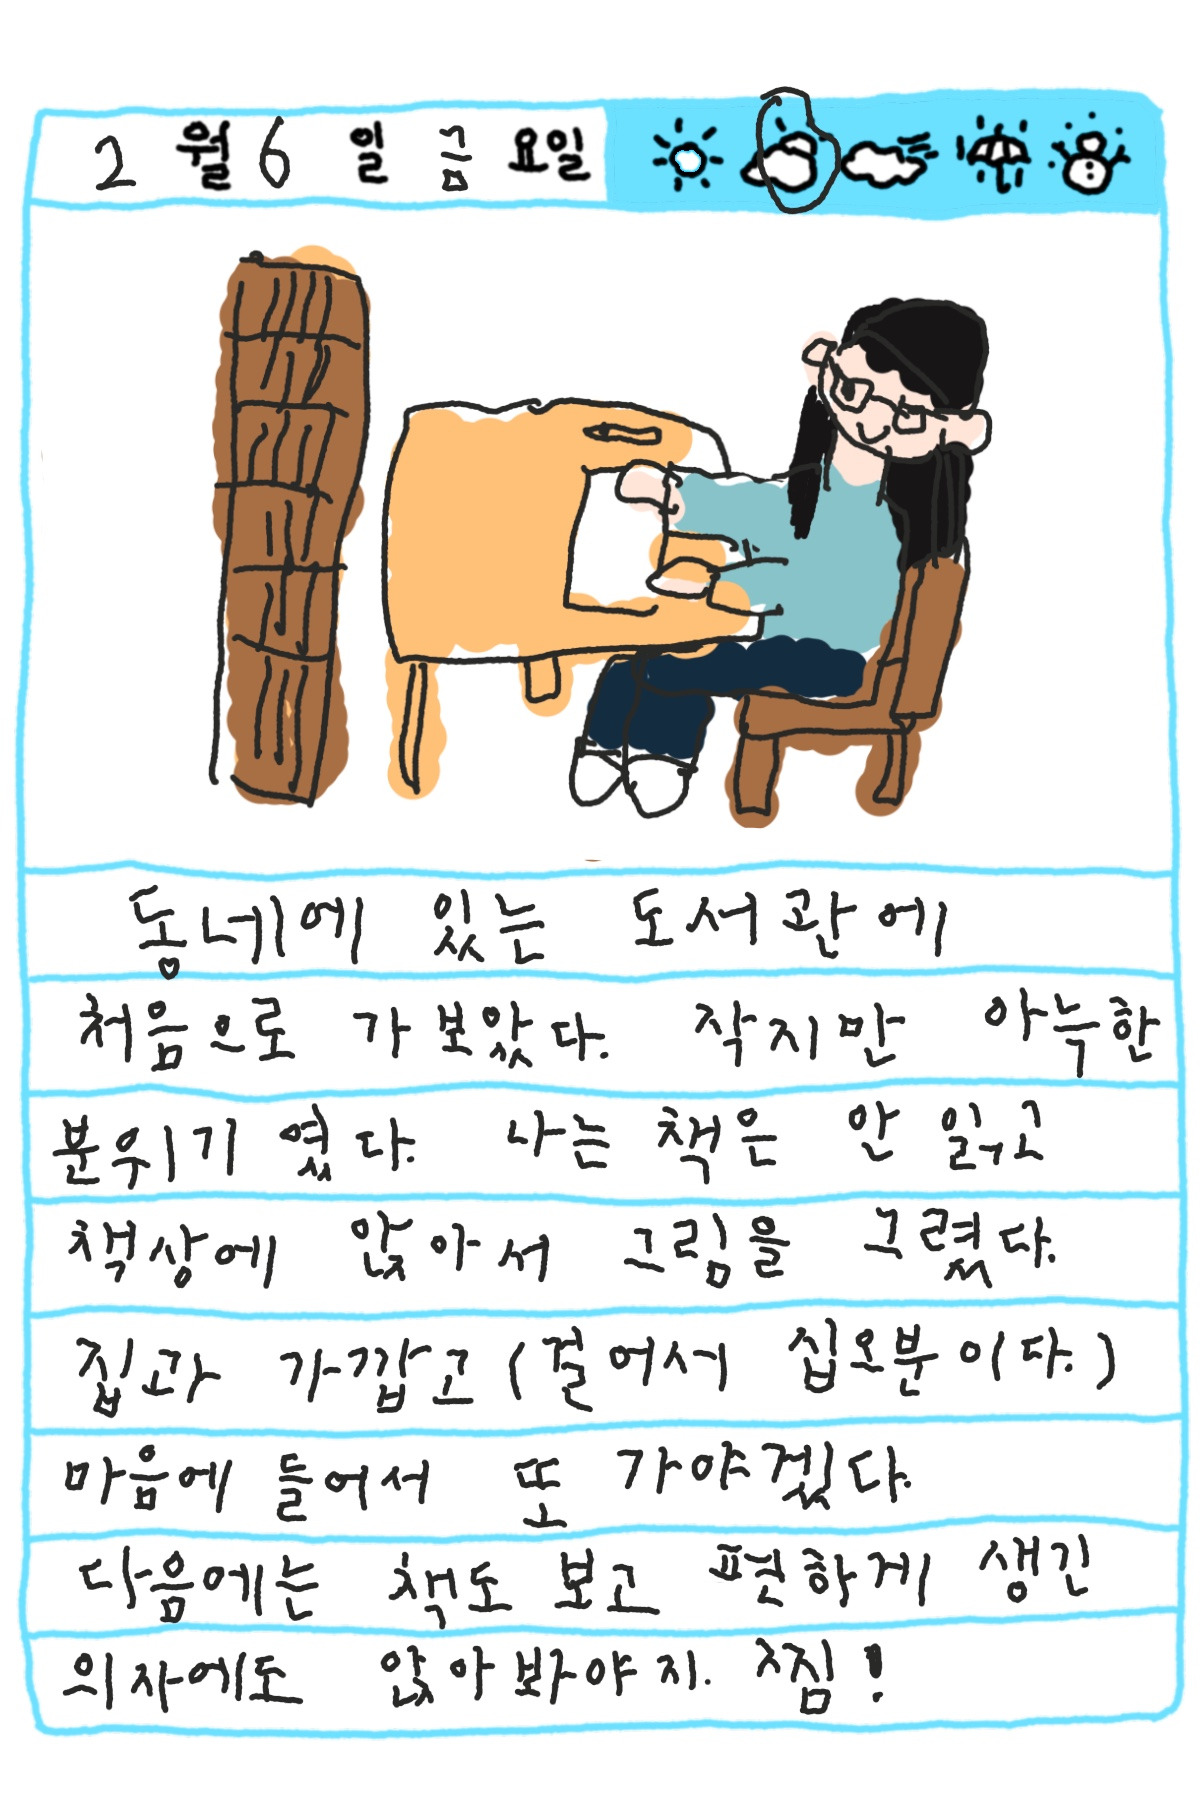 2월 6일 금요일
동네에 있는 도서관에
처음으로 가 보았다. 작지만 아늑한
분위기 였다. 나는 책은 안 읽고
책상에 앉아서 그림을 그렸다.
집과 가깝고 (걸어서 십오분이다.)
마음에 들어서 또 가야겠다.
다음에는 책도 보고 편하게 생긴
의자에도 앉아 봐야지. 찜!